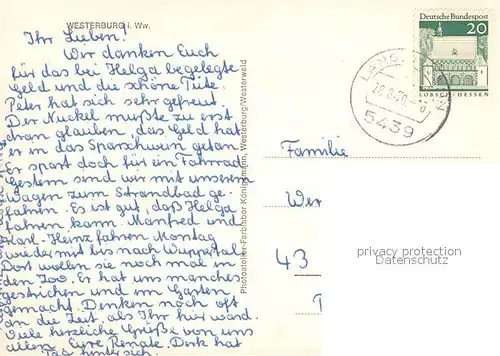 WESTERBURG i. Ww.
Ihr Lieben!
Wir danken Euch
für das bei Helga begelegte
Geld und die schöne Tüte.
Peter hat sich sehr gefreut.
Der Nuckel mußte zu erst
dran glauben, das Geld hat
er in das Sparschwein getan.
Er spart doch für ein Fahrrad
Gestern sind wir mit unserem
Wagen zum Strandbad ge-
fahren. Es ist gut, daß Helga
fahren kann. Manfred und
Karl-Heinz fahren Montag
wieder mit bis nach Wuppertal.
Dort wollen sie noch mal in
den Zoo. Er hat uns manches
gestrichen und im Garten
gemacht. Denken noch oft
an die Zeit, als Ihr hier ward.
Viele herzliche Grüße von uns
allen. Eure Renate. Dirk hat
Tag hinter sich.
Photoatelier-Farblabor Königsmann, Westerburg/Westerwald
Deutsche Bundespost
20
LORSCH/HESSEN
5439
Familie
Wer
43
privacy protection
Datenschutz